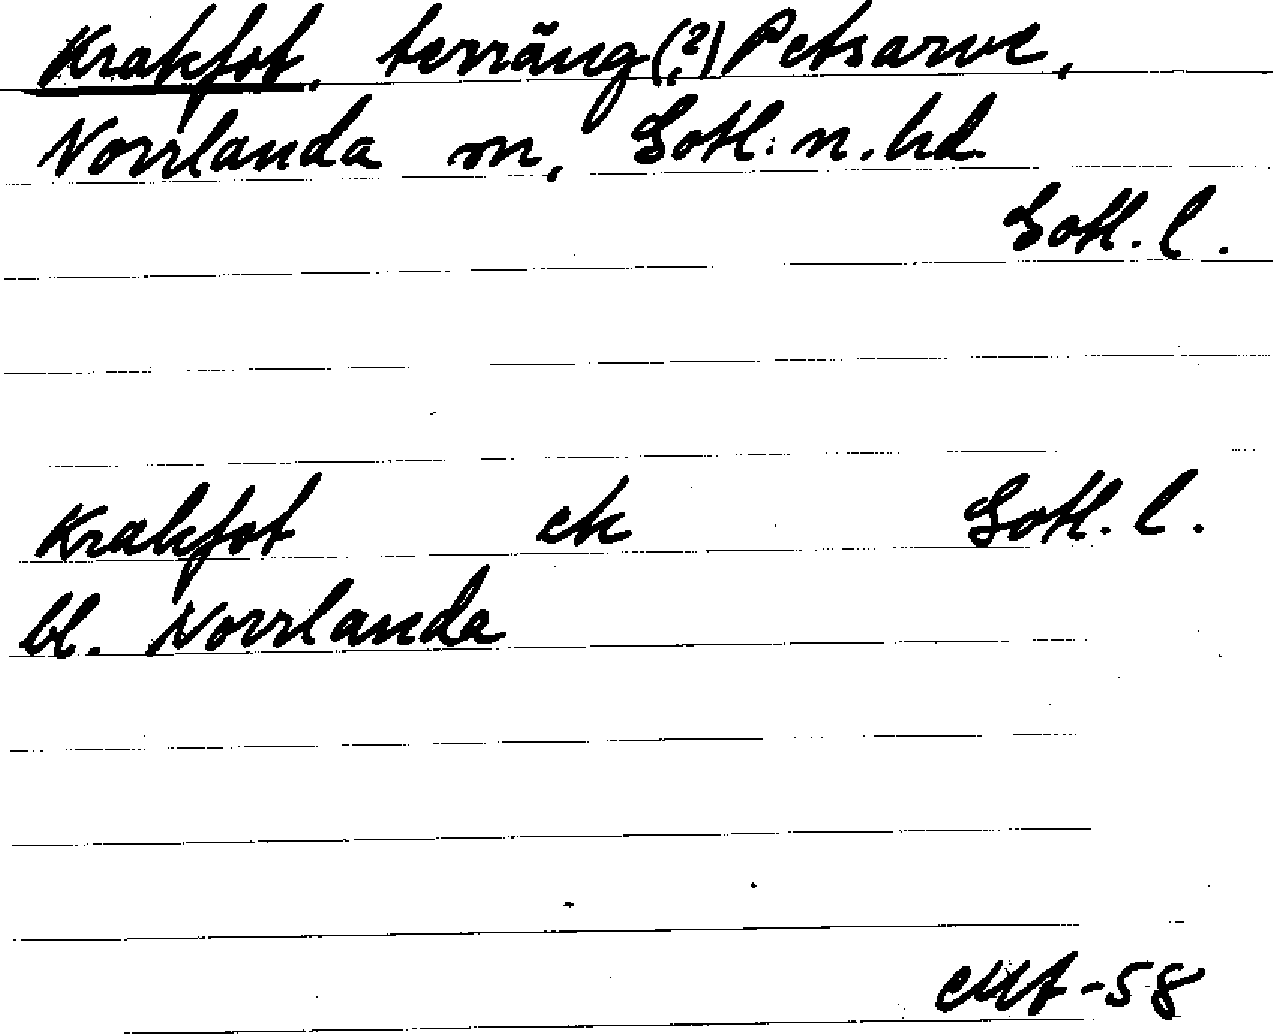 Krakfot, terräng(?) Petsarve,
Norrlanda sn, Gotl:s n. hd
Gotl. l.
Krakfot ek Gotl. l.
bl. Norrlanda
-58